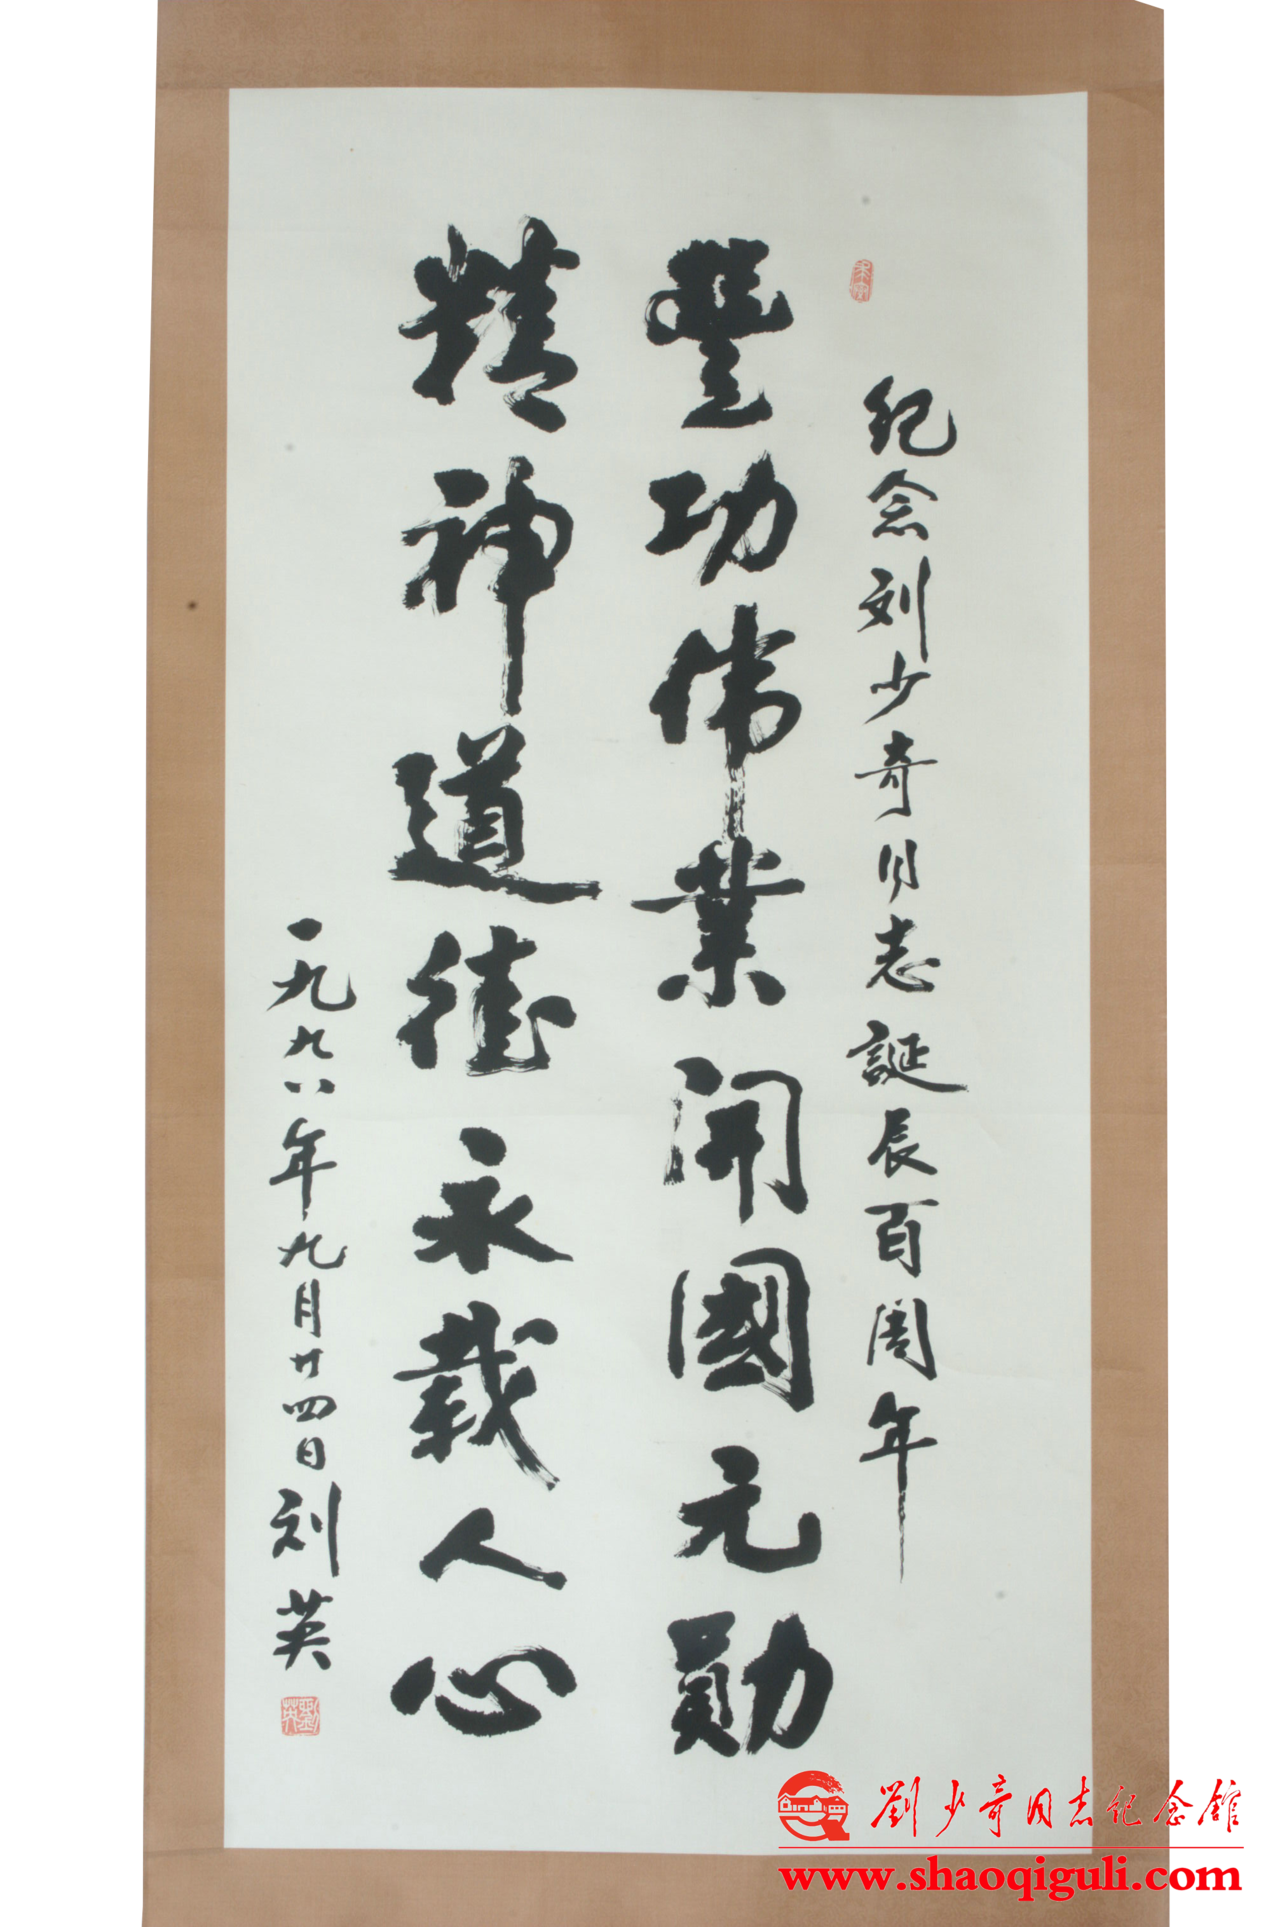 纪念刘少奇同志誕辰百周年
豐功伟業开國元勋
精神道德永载人心
一九九八年九月廿四日刘英
劉英
劉少奇同志纪念馆
www.shaoqiguli.com